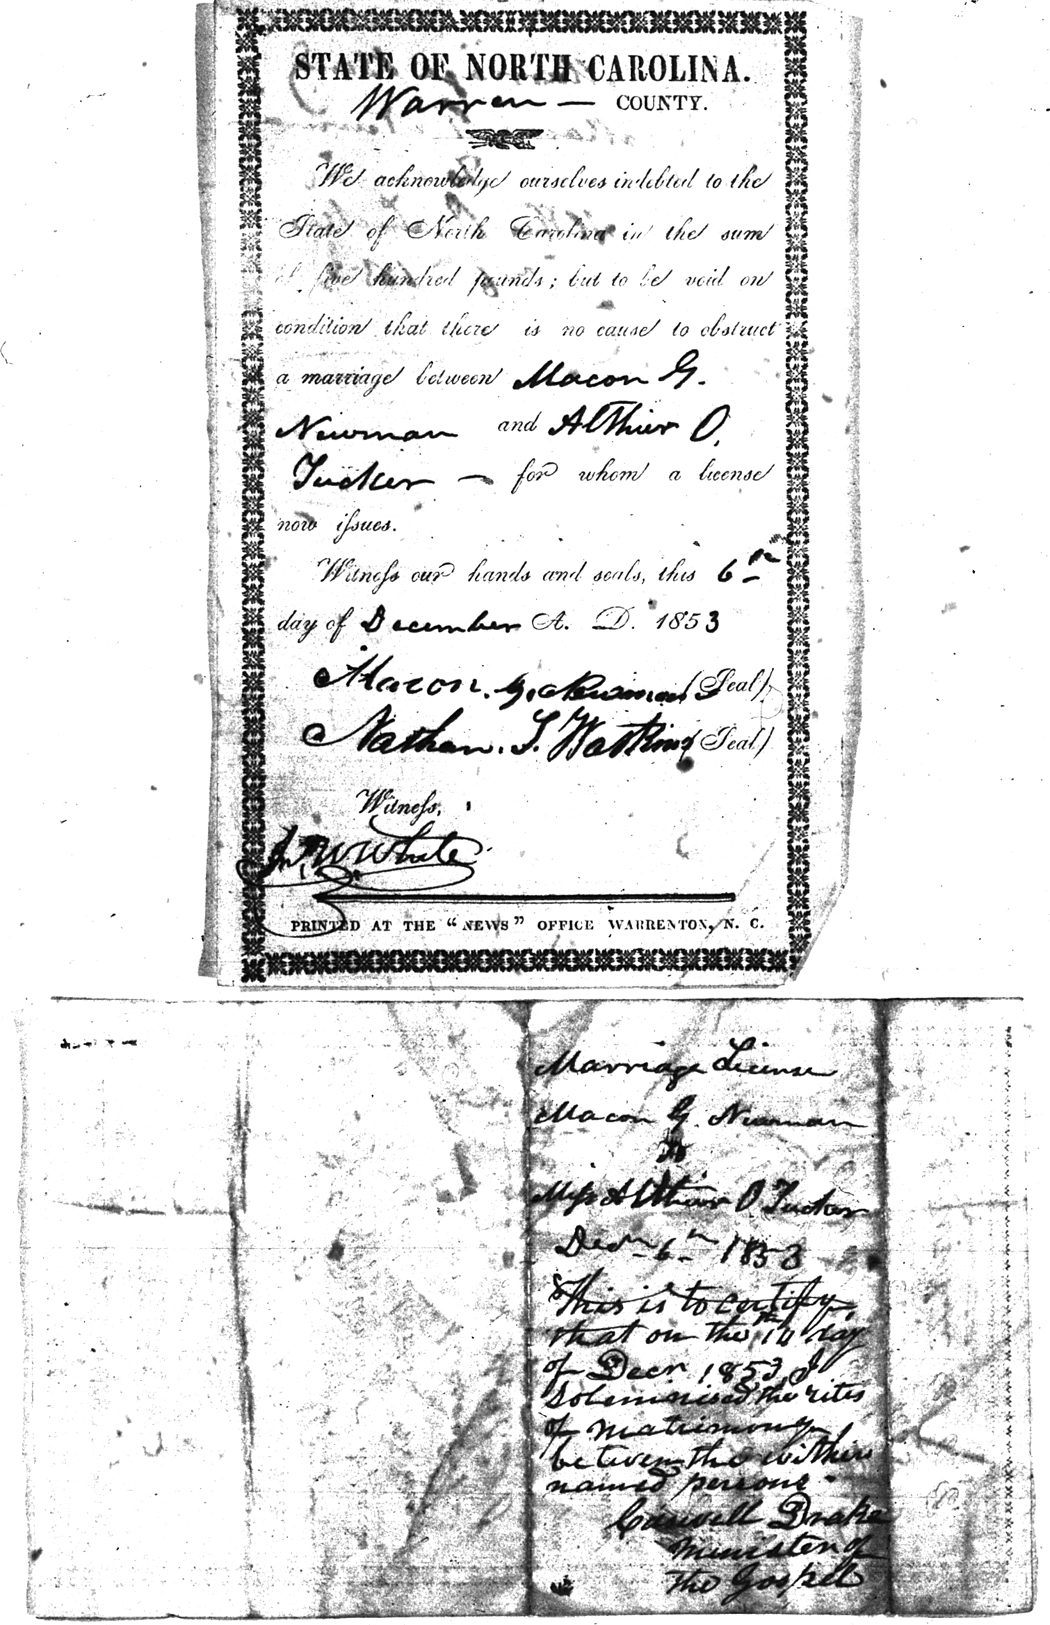 STATE OF NORTH CAROLINA.
Warren — COUNTY.
We acknowledge ourselves indebted to the
State of North Carolina in the sum
of five hundred pounds; but to be void on
condition that there is no cause to obstruct
a marriage between Macon G.
Newman and Althier O.
Tucker — for whom a license
now issues.
Witness our hands and seals, this 6th
day of December A. D. 1853
Macon. G. Newman (Seal)
Nathan. T. Watkins (Seal)
Witness,
W White
PRINTED AT THE "NEWS" OFFICE WARRENTON, N. C.
Marriage License
Macon G. Newman
to
Miss Althier O. Tucker
Decr 6th 1853
This is to certify,
that on the 14th day
of Decr 1853, I
Solemnised the rites
of matrimony
between the within
named persons
Drake
Minister of
the Gospel